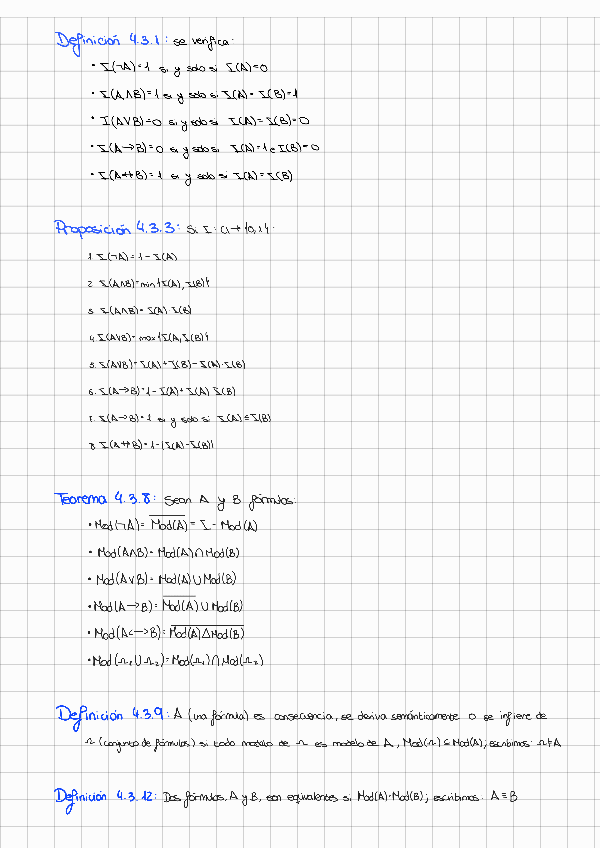 Definición 4.3.1: se verifica:
• I(¬A)=1 si y solo si I(A)=0
• I(A∧B)=1 si y solo si I(A)=I(B)=1
• I(A∨B)=0 si y solo si I(A)=I(B)=0
• I(A→B)=0 si y solo si I(A)=1 e I(B)=0
• I(A↔B)=1 si y solo si I(A)=I(B)
Proposición 4.3.3: Si I: Ω→{0,1}:
1. I(¬A)=1-I(A)
2. I(A∧B)=min{I(A),I(B)}
3. I(A∧B)=I(A)·I(B)
4. I(A∨B)=max{I(A,I(B)}
5. I(A∨B)=I(A)+I(B)-I(A)·I(B)
6. I(A→B)=1-I(A)+I(A)·I(B)
7. I(A→B)=1 si y solo si I(A)≤I(B)
8. I(A↔B)=1-|I(A)-I(B)|
Teorema 4.3.8: Sean A y B fórmulas:
• Mod(¬A)= \overline{Mod(A)} = I - Mod(A)
• Mod(A∧B)= Mod(A)∩Mod(B)
• Mod(A∨B)= Mod(A)∪Mod(B)
• Mod(A→B)= \overline{Mod(A)}∪Mod(B)
• Mod(A<->B)= \overline{Mod(A)ΔMod(B)}
• Mod(Ω₁∪Ω₂)=Mod(Ω₁)∩Mod(Ω₂)
Definición 4.3.9: A (una fórmula) es consecuencia, se deriva semánticamente o se infiere de
Ω (conjunto de fórmulas) si todo modelo de Ω es modelo de A, Mod(Ω)⊆Mod(A); escribimos: Ω⊨A
Definición 4.3.12: Dos fórmulas, A y B, son equivalentes si Mod(A)=Mod(B); escribimos: A≡B